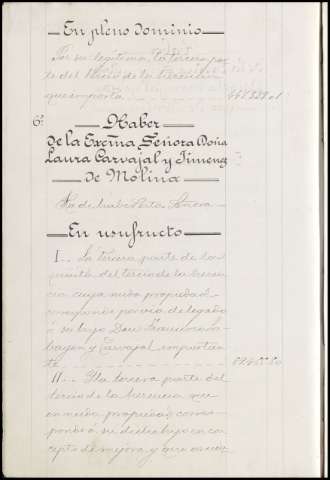 En pleno dominio
Por su legítima, la tercera par
te del tercio de la herencia
que importa
6º Haber
de la Excma Señora Doña
Laura Carvajal y Jimenez
de Molina
Ha de haber esta Señora
En usufructo
I.. La tercera parte de la
del tercio de la heren
cia cuya nuda propiedad
por via de legado
á su hijo Don Francisco
y Carvajal importan
te
II.. Y la tercera parte del
tercio de la herencia que
en nuda propiedad corres
ponde á su dicho hijo en con
cepto de mejora y que